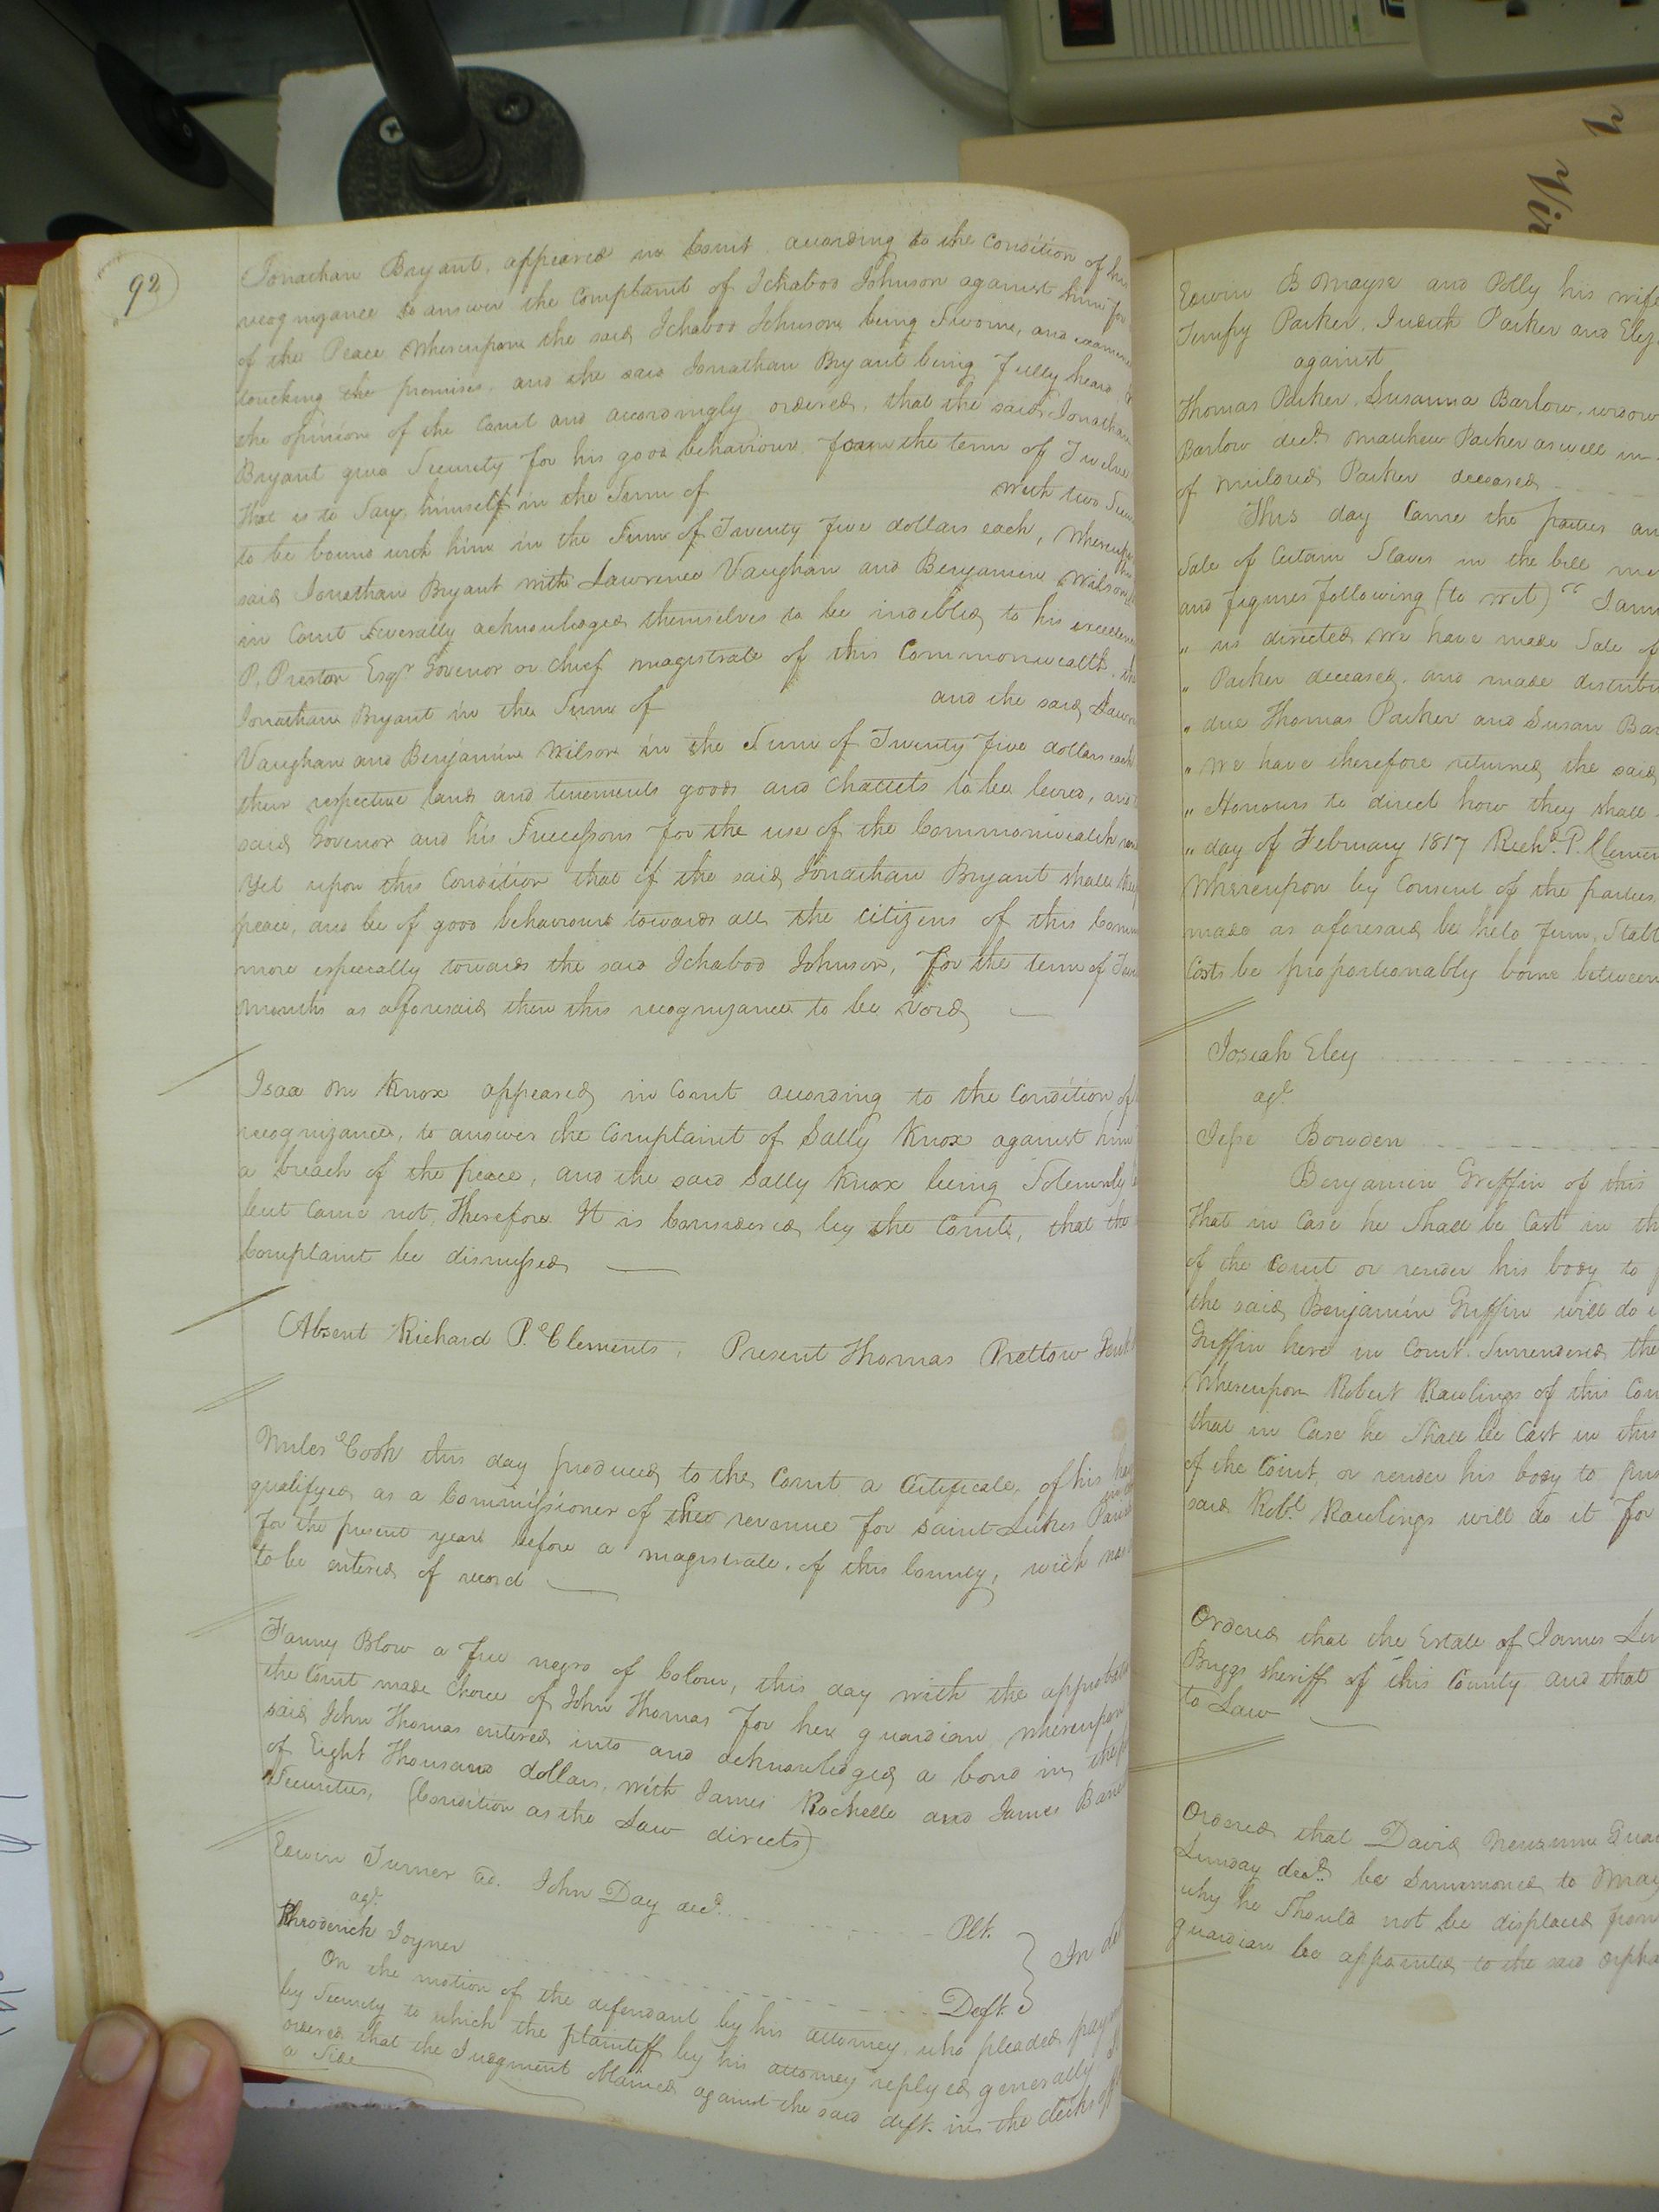 92
Jonathan Bryant, appeared in Court according to the Condition of his
recognizance to answer the Complaint of Ichabod Johnson against him for
of the Peace Whereupon the said Ichabod Johnson being Sworn, and examined
touching the premises, and the said Jonathan Bryant being fully heard
the opinion of the Court and accordingly ordered, that the said Jonathan
Bryant give Security for his good behaviour for the term of Twelve
that is to Say, himself in the Sum of with two
to be bound with him in the Sum of Twenty five dollars each, Whereupon
said Jonathan Bryant with Lawrence Vaughan and Benjamin Wilson
in Court Severally acknowledged themselves to be indebted to his excellency
P. Preston Esqr. Govenor or chief magistrate of this Commonwealth,
Jonathan Bryant in the Sum of and the said
Vaughan and Benjamin Wilson in the Sum of Twenty five dollars each
their respective lands and tenements goods and Chattels to be levied, and
said Govenor and his Successors for the use of the Commonwealth
Yet upon this Condition that if the said Jonathan Bryant shall keep
peace, and be of good behaviour towards all the citizens of this
more especially towards the said Ichabod Johnson, for the term of
months as aforesaid then this recognizance to be Void
Isaa Mc Knox appeared in Court according to the Condition of
recognizance, to answer the Complaint of Sally Knox against him
a breach of the peace, and the said Sally Knox being Solemnly
but Came not, Therefore It is Considered by the Court, that the
Complaint be dismissed
Absent Richard P. Clements, Present Thomas Pretlow
Miles Cook this day produced to the Court a Certificate, of his
qualifyed as a Commissioner of the revenue for Saint Lukes
for the present year before a magistrate, of this County, wich
to be entered of record
Fanny Blow a free negro of Colour, this day with the
the Court made Choice of John Thomas for her guardian, whereupon
said John Thomas entered into and acknowledged a bond in
of Eight Thousand dollars, with James Rochelle and James
Securities, (Condition as the Law directs)
Edwin Turner ad. John Day decd. Plt.
agt. In
Rhroderick Joyner Deft.
On the motion of the defendant by his attorney, who pleaded
by Security to which the plaintiff by his attorney replyed generally
ordered that the Judgment Obtained against the said deft. in the clerks
a Side
Edwin B Mayse and Polly his wife
Tempy Parker, Judith Parker and
against
Thomas Parker, Susanna Barlow, widow
Barlow decd. Mathew Parker as well
of Mildred Parker deceased
This day Came the parties
Sale of Certain Slaves in the bill
and figures following (to wit) "
" us directed we have made Sale of
" Parker deceased, and made
" due Thomas Parker and Susan
" We have therefore returned the said
" Honours to direct how they shall
" day of February 1817 Richd. P.
Whereupon by Consent of the parties
made as aforesaid be held firm,
Costs be proportionably borne between
Josiah Eley
agt.
Jesse Bowden
Benjamin Griffin of this
that in Case he Shall be Cast in
of the Court or render his body to
the said Benjamin Griffin will do
Griffin here in Court Surrendered the
Whereupon Robert Rawlings of this
that in Case he Shall be Cast in this
of the Court, or render his body to
said Robt. Rawlings will do it for
Ordered that the Estate of James
Briggs Sheriff of this County and that
to Law
Ordered that David Newsum
Lunday decd. be Summoned to
why he Should not be displaced from
guardian be appointed to the said